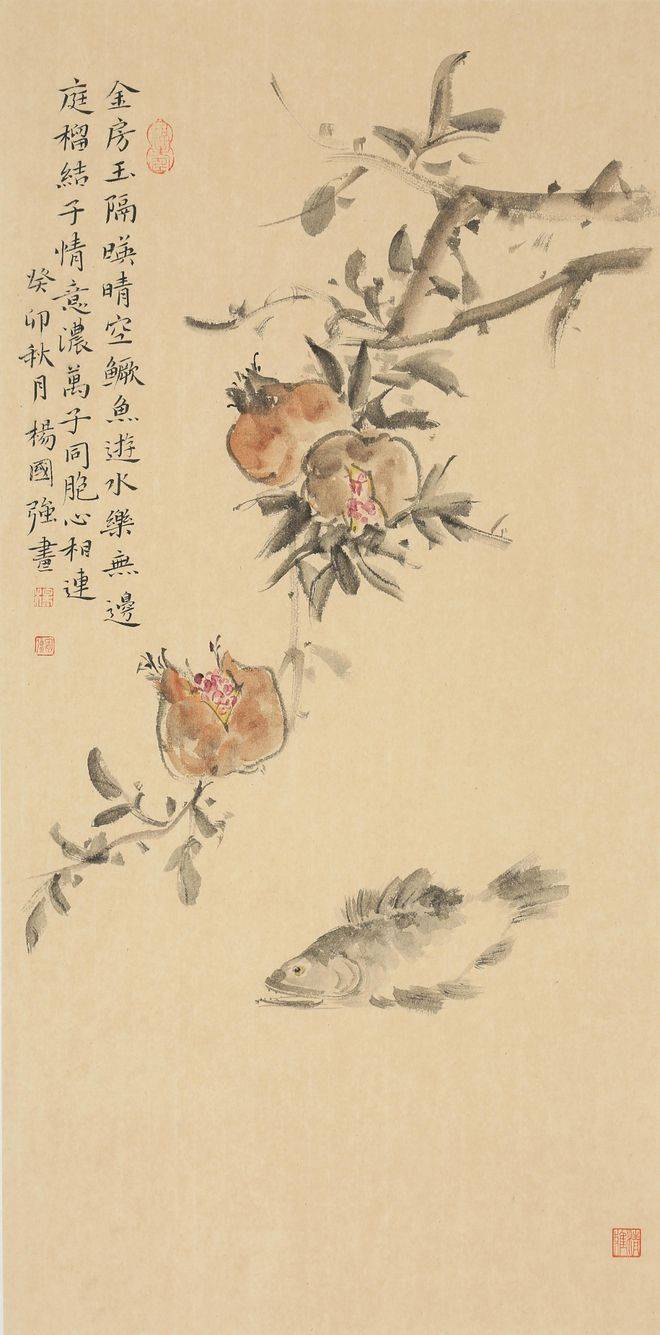 金房玉隔暎晴空鱖魚遊水樂無邊
庭榴結子情意濃萬子同胞心相連
癸卯秋月楊國強畫